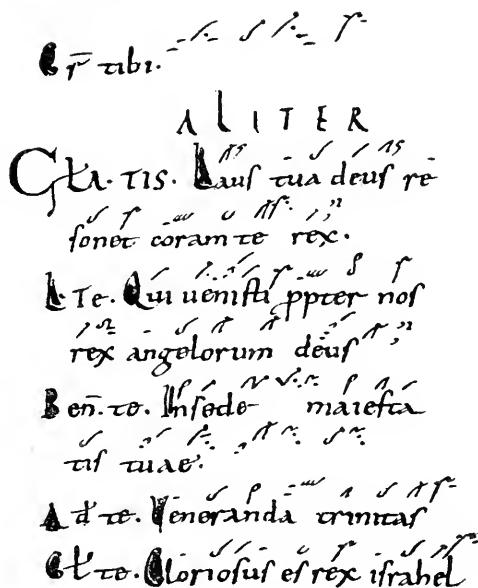 Gr̄ tibi.
ALITER
GŁA. TIS. Laus tua deus re
sonet coram te rex.
L. Te. Qui uenisti ꝓpter nos
rex angelorum deus
Ben̄. te. Insede maiesta
tis tuae.
Ad te. Veneranda trinitas
Gł te. Gloriosus es rex israhel